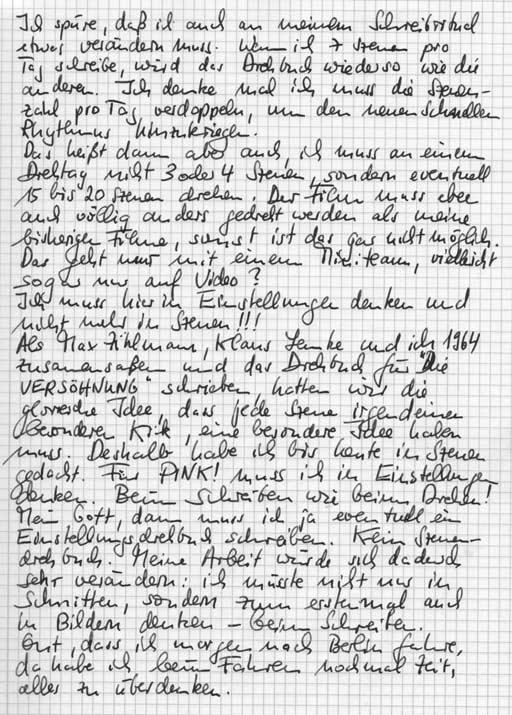 Ich spüre, daß ich auch an meinem Schreibritual
etwas verändern muss. Wenn ich 7 Szenen pro
Tag schreibe, wird das Drehbuch wieder so wie die
anderen. Ich denke mal ich muss die Szenen-
zahl pro Tag verdoppeln, um den neuen schnellen
Rhythmus hinzukriegen.
Das heißt dann aber auch, ich muss an einem
Drehtag nicht 3 oder 4 Szenen, sondern eventuell
15 bis 20 Szenen drehen. Der Film muss eben
auch völlig anders gedreht werden als meine
bisherigen Filme, sonst ist das gar nicht möglich.
Das geht nur mit einem Miniteam, vielleicht
sogar nur auf Video?
Ich muss hier in Einstellungen denken und
nicht mehr in Szenen!!!
Als Max Zihlmann, Klaus Lemke und ich 1964
zusammensaßen und das Drehbuch für "Die
VERSÖHNUNG" schrieben hatten wir die
glorreiche Idee, dass jede Szene irgendeinen
besonderen Kick, eine besondere Idee haben
muss. Deshalb habe ich bis heute in Szenen
gedacht. Für PINK! muss ich in Einstellungen
denken. Beim Schreiben wie beim Drehen!
Mein Gott, dann muss ich ja eventuell ein
Einstellungsdrehbuch schreiben. Kein Szenen-
drehbuch. Meine Arbeit würde sich dadurch
sehr verändern: ich müsste nicht nur in
Schnitten, sondern zum erstenmal auch
in Bildern denken – beim Schreiben.
Gut, dass ich morgen nach Berlin fahre,
da habe ich beim Fahren nochmal Zeit,
alles zu überdenken.